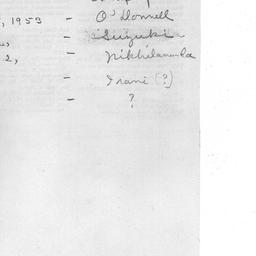 , 1953 - O'Donnell
- Suzuki
2, - Nikhilananda
- Irani (?)
- ?